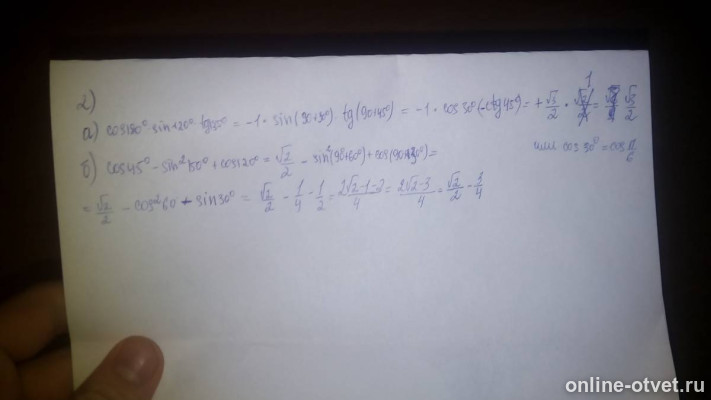 2)
а) cos180° · sin120° · tg135° = -1 · sin(90+30°) tg(90+45°) = -1 · cos30°(-ctg45°) = + √3/2 · 1 = √3/2
или cos30° = cos π/6
б) cos45° - sin²150° + cos120° = √2/2 - sin²(90°+60°) + cos(90+30°) =
= √2/2 - cos²60 - sin30° = √2/2 - 1/4 - 1/2 = 2√2-1-2/4 = 2√2-3/4 = √2/2 - 3/4
online-otvet.ru